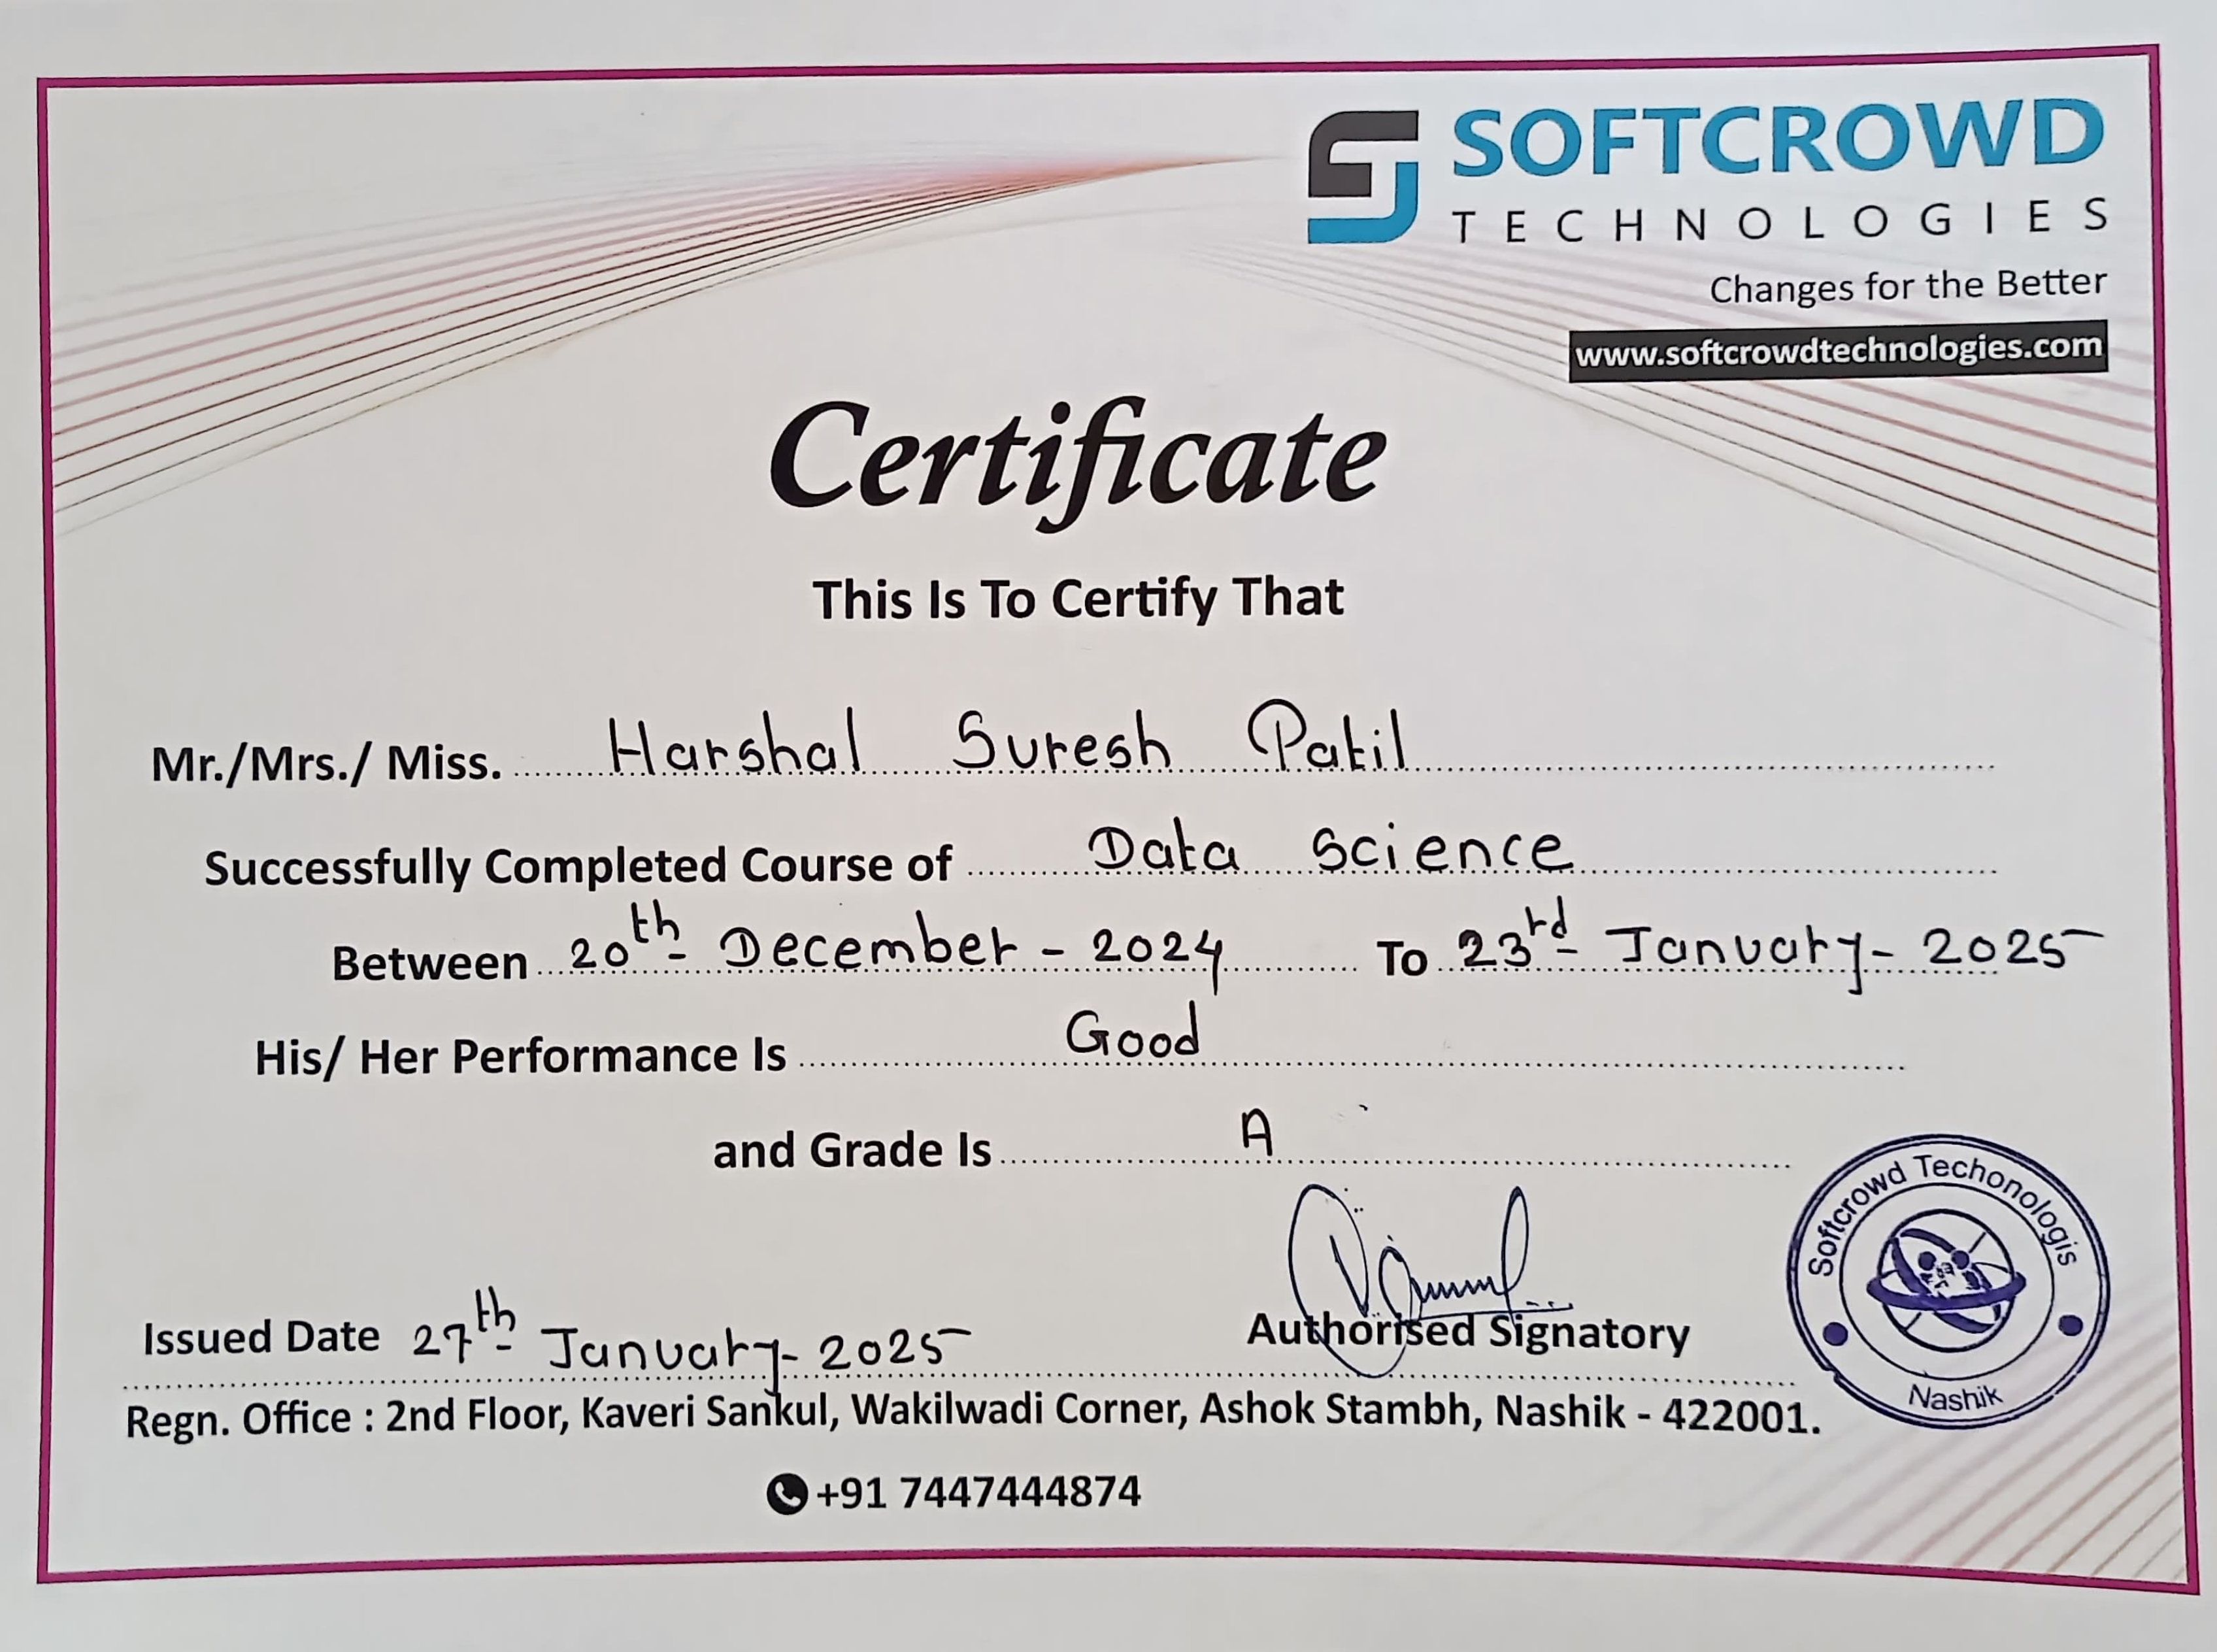 SOFTCROWD
TECHNOLOGIES
Changes for the Better
www.softcrowdtechnologies.com
Certificate
This Is To Certify That
Mr./Mrs./ Miss. Harshal Suresh Patil
Successfully Completed Course of Data Science
Between 20th December - 2024 To 23rd January - 2025
His/ Her Performance Is Good
and Grade Is A
Softcrowd Techonologis
Nashik
Issued Date 27th January - 2025
Authorised Signatory
Regn. Office : 2nd Floor, Kaveri Sankul, Wakilwadi Corner, Ashok Stambh, Nashik - 422001.
+91 7447444874